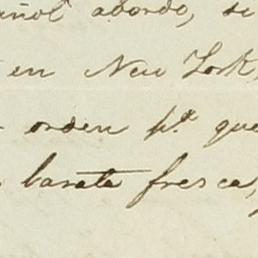 abordo, se
en New York,
orden pa. que
barata fresca,